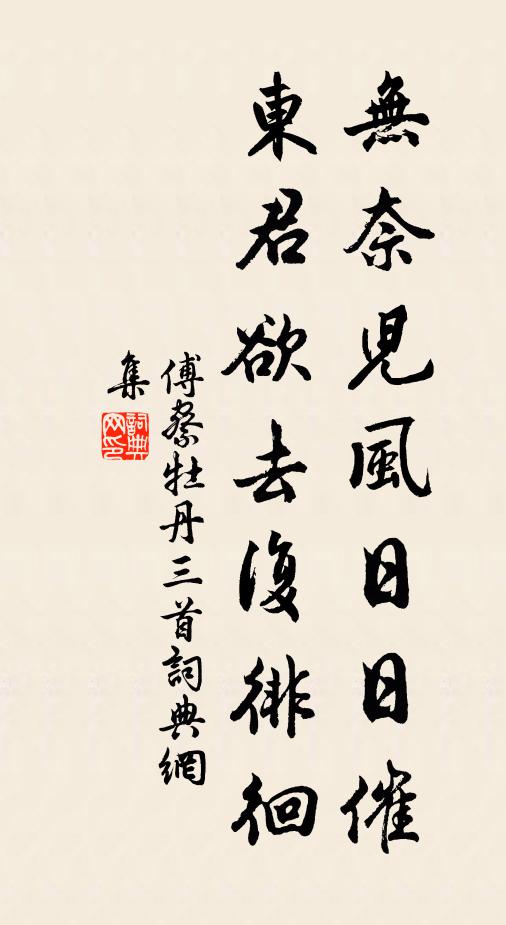 無奈兒風日日催
東君欲去復徘徊
傅察牡丹三首詞典網
集
詞典
网印